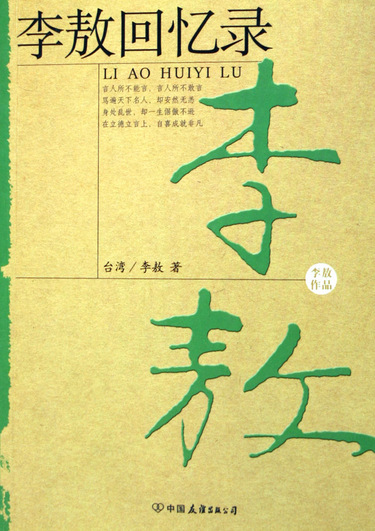 李敖回忆录
LI AO HUIYI LU
言人所不能言，言人所不敢言
骂遍天下名人，却安然无恙
身处乱世，却一生倨傲不逊
在立德立言上，自喜成就非凡
李
台湾／李敖 著
李敖
作品
敖
中国友谊出版公司